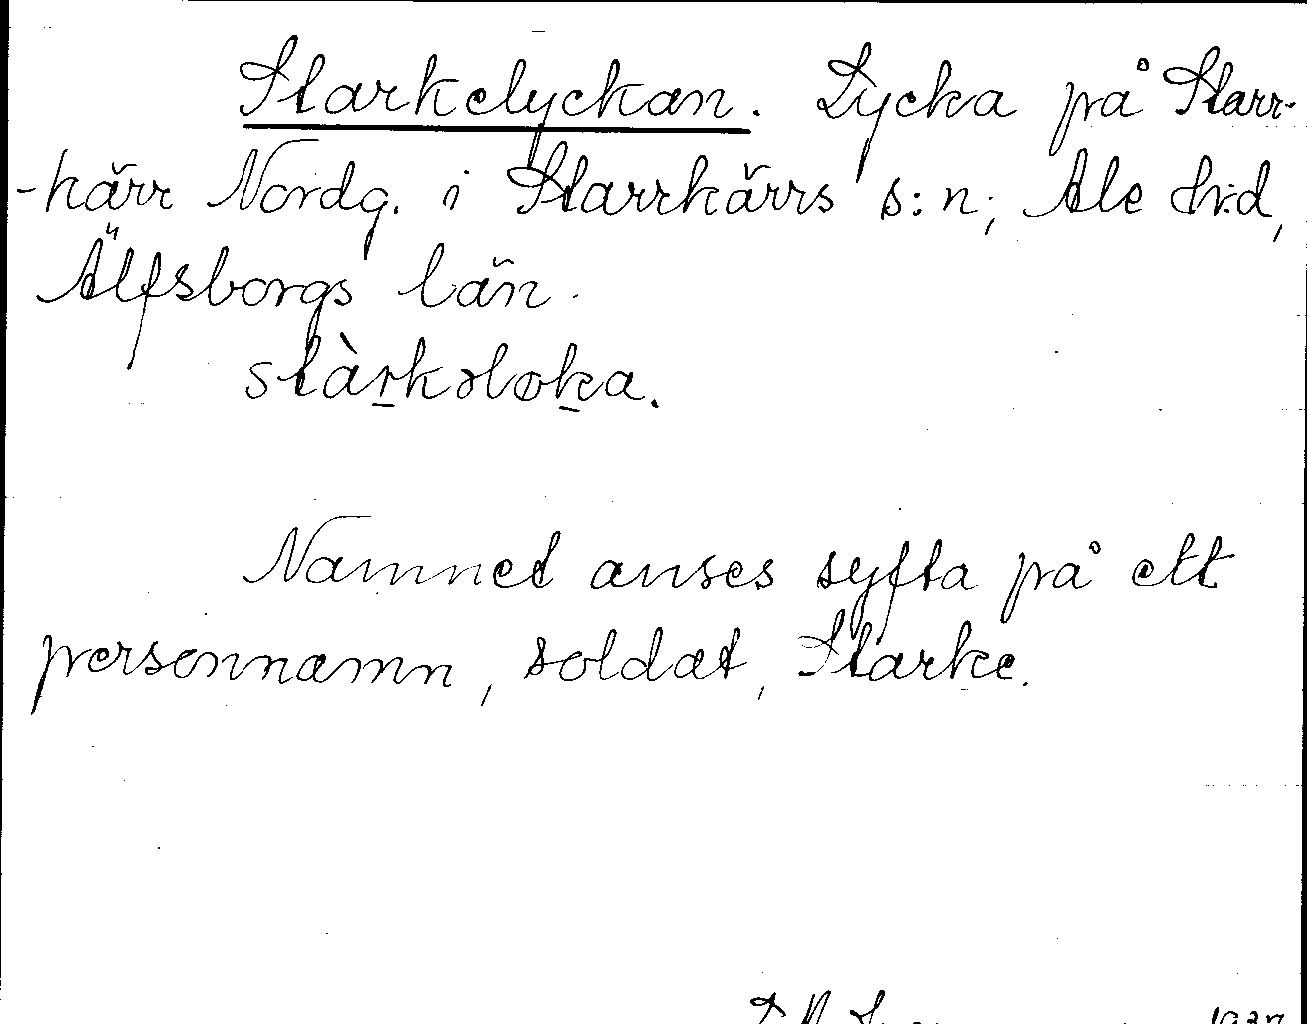 Starkelyckan. Lycka på Starr-
-kärr Nordg. i Starrkärrs s:n, Ale h:d,
Älfsborgs län.
stàrkəløka.
Namnet anses syfta på ett
personnamn, soldat, Starke.